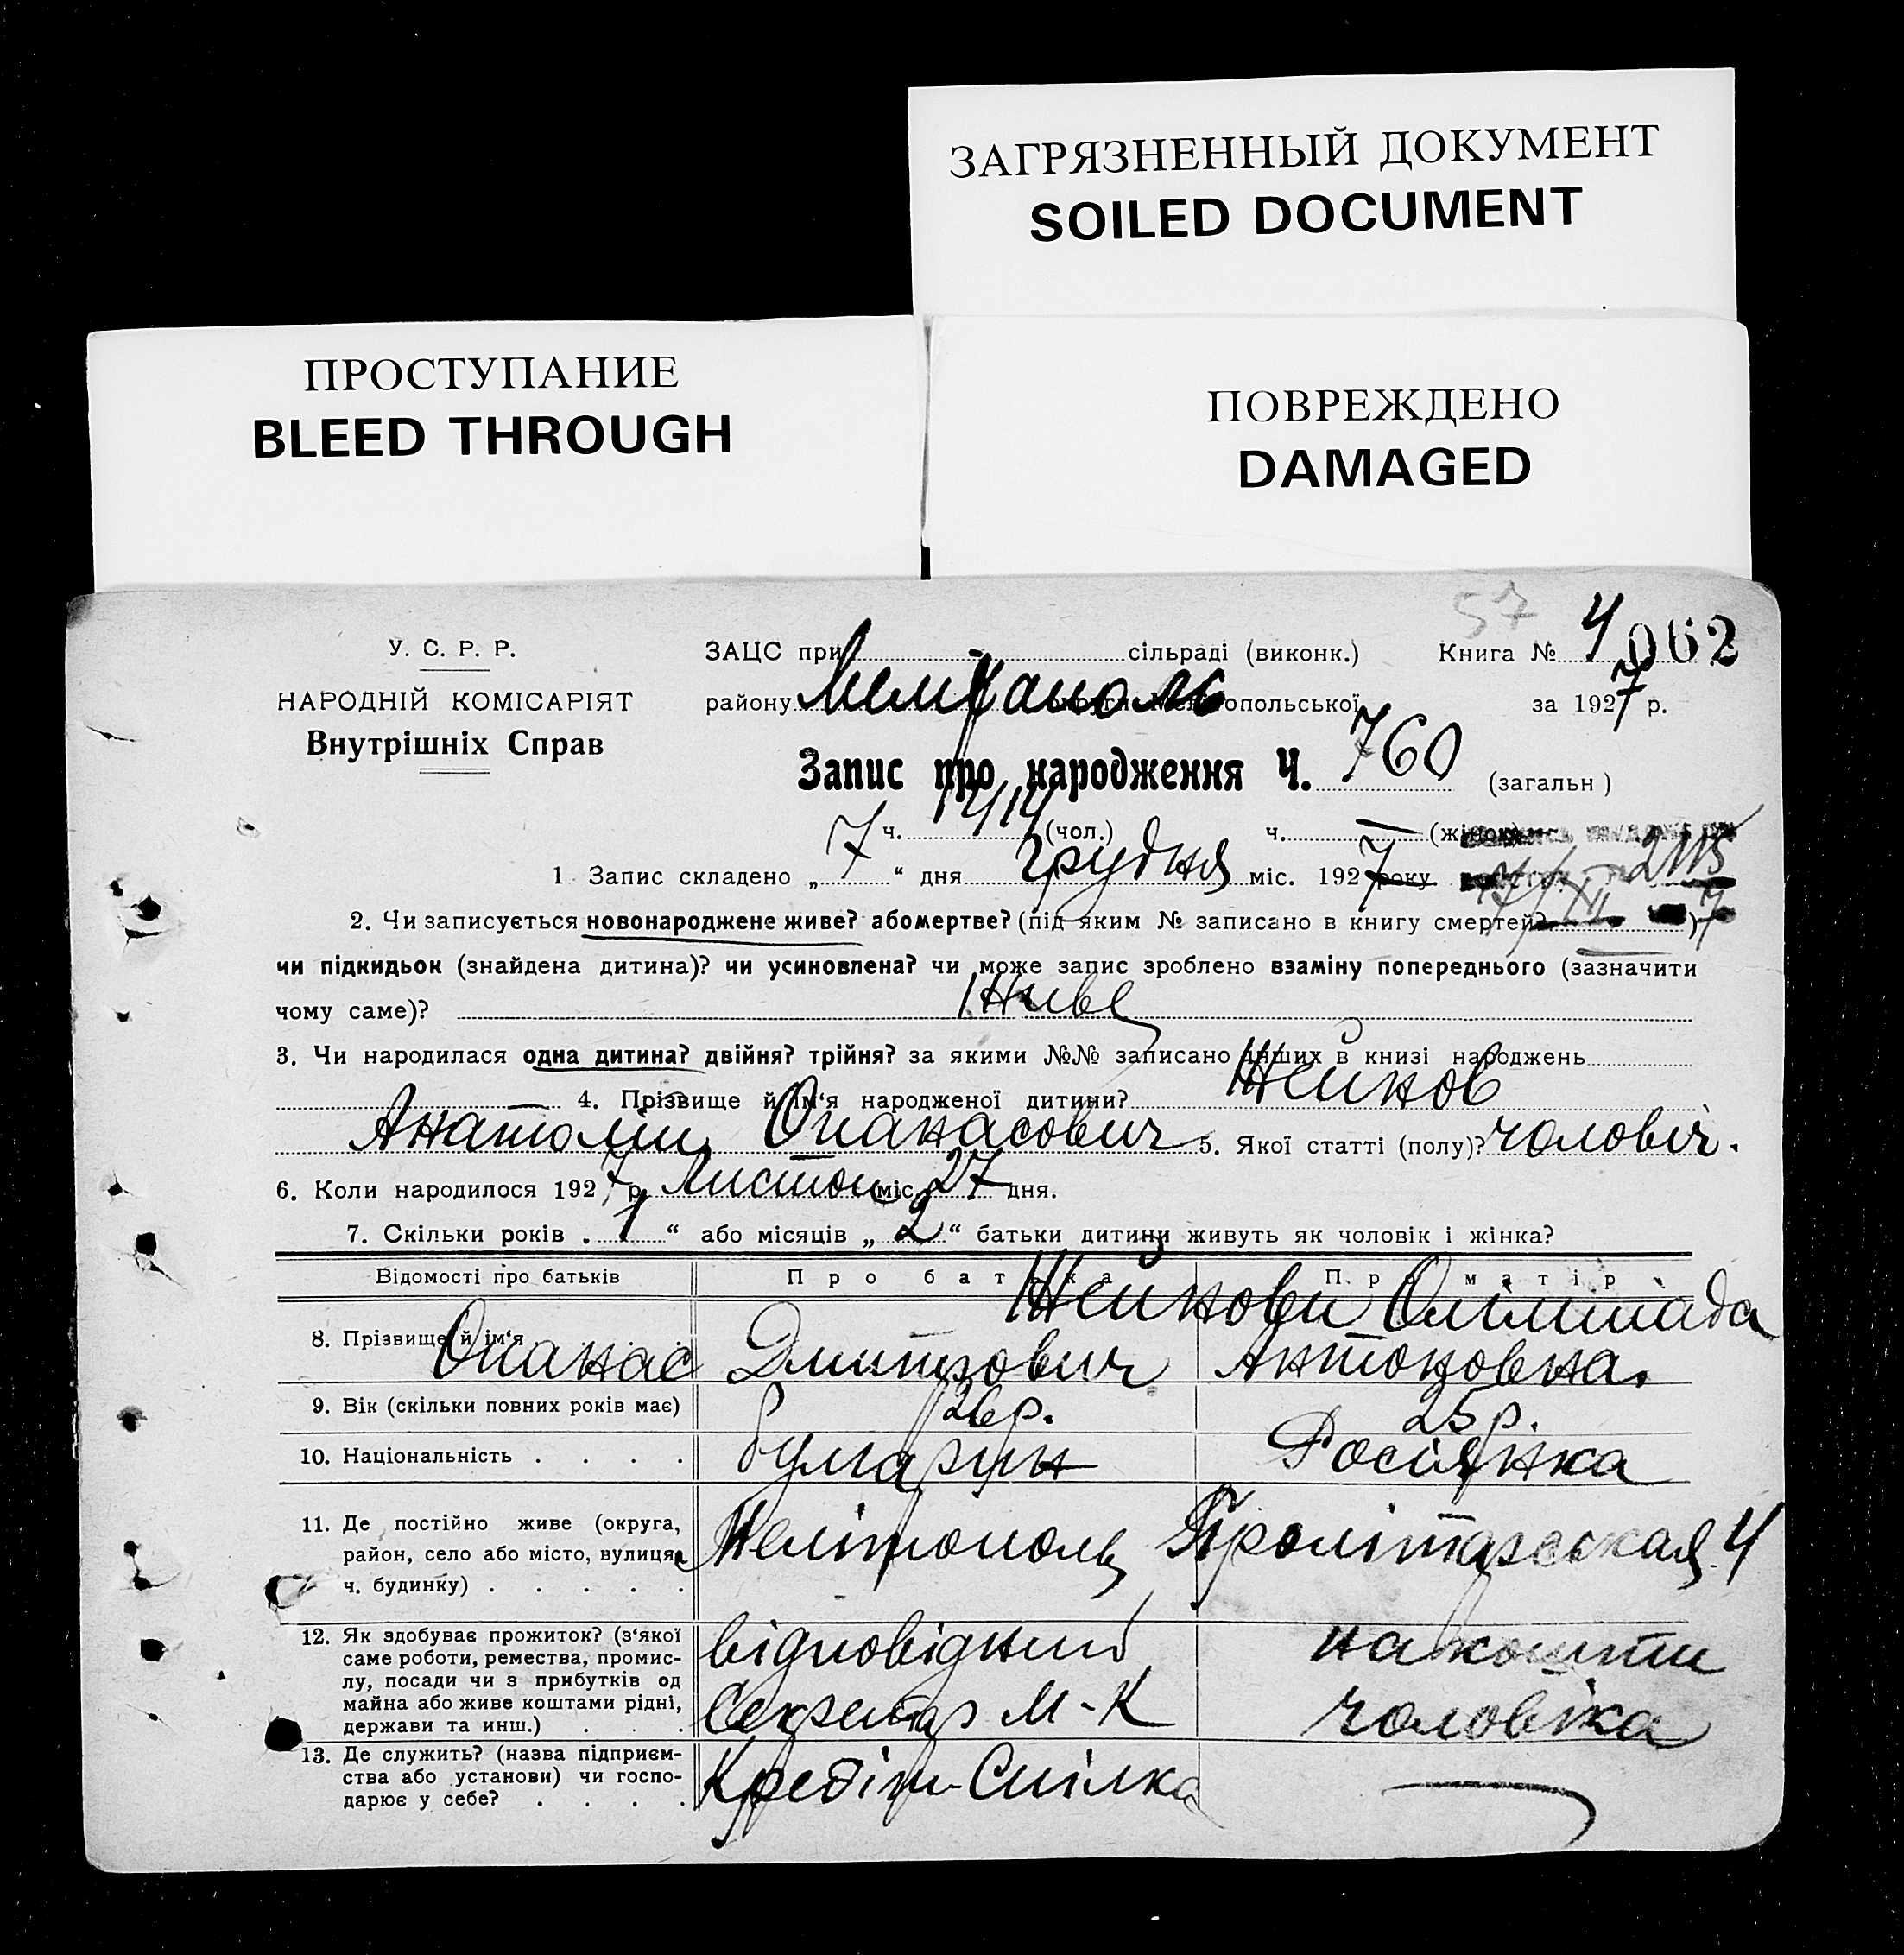 ЗАГРЯЗНЕННЫЙ ДОКУМЕНТ
SOILED DOCUMENT
ПРОСТУПАНИЕ
BLEED THROUGH
ПОВРЕЖДЕНО
DAMAGED
57
У. С. Р. Р.
НАРОДНІЙ КОМІСАРІЯТ
Внутрішніх Справ
ЗАЦС при - сільраді (виконк.) Книга № 4 062
району округи Мелітопольської за 1927 р.
Запис про народження Ч. 760 (загальн)
ч. 414 (чол.) ч. — (жіноч.)
1 Запис складено „ 7 “ дня грудня міс. 1927 року 2115
2. Чи записується новонароджене живе? або мертве? (під яким № записано в книгу смертей? )
чи підкидьок (знайдена дитина)? чи усиновлена? чи може запис зроблено взаміну попереднього (зазначити
чому саме)? Живе
3. Чи народилася одна дитина? двійня? трійня? за якими №№ записано инших в книзі народжень
4. Прізвище й ім‘я народженої дитини? Жейнов
Анатолий Опанасович 5. Якої статті (полу)? чоловіч.
6. Коли народилося 1927 р. Листоп міс. 27 дня.
7. Скільки років „ 1 “ або місяців „ 2 “ батьки дитини живуть як чоловік і жінка?
Відомості про батьків Про батька Про матір
Жейнови Олімпиада
8. Прізвище й ім‘я Опанас Дмитрович Антоновна.
9. Вік (скільки повних років має) 26 р. 25 р.
10. Національність . . . . булгарин Росіянка
11. Де постійно живе (округа,
район, село або місто, вулиця,
ч. будинку) . . . . . Мелітополь Пролітарская 4
12. Як здобуває прожиток? (з‘якої
саме роботи, ремества, промис-
лу, посади чи з прибутків од
майна або живе коштами рідні,
держави та инш.) . . .
відповідний
Секретар М-К
на кошти
чоловіка
13. Де служить? (назва підприєм-
ства або установи) чи госпо-
дарює у себе? . . . .
Кредіт-Спілка